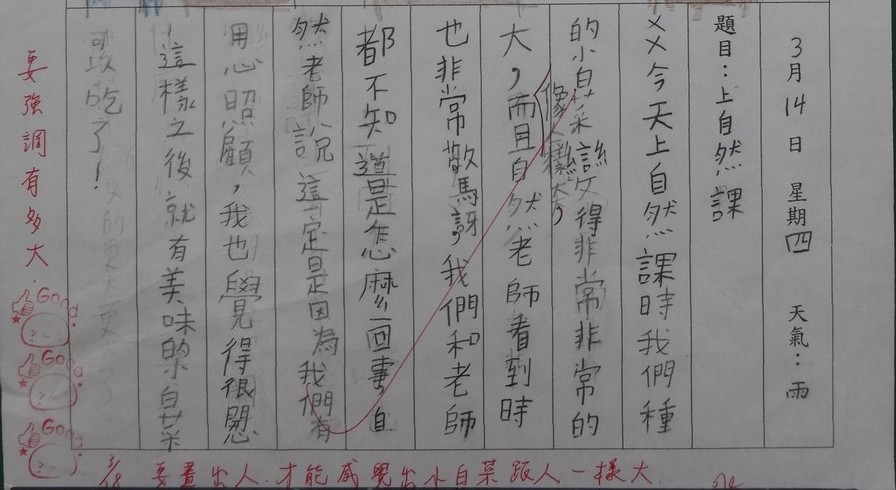 3月14日 星期四 天氣:雨
題目:上自然課
××今天上自然課時我們種
的小白菜變得非常非常的
(像人一樣大)
大,而且自然老師看到時
也非常敬馬訝,我們和老師
都不知道是怎麼一回事,自
然老師說這一定是因為我們有
用心照顧,我也覺得很開心
這樣之後就有美味的小白菜
可以吃了!
要強調有多大.
Good.
Good.
Good.
3/18 要畫出人.才能感覺出小白菜跟人一樣大.